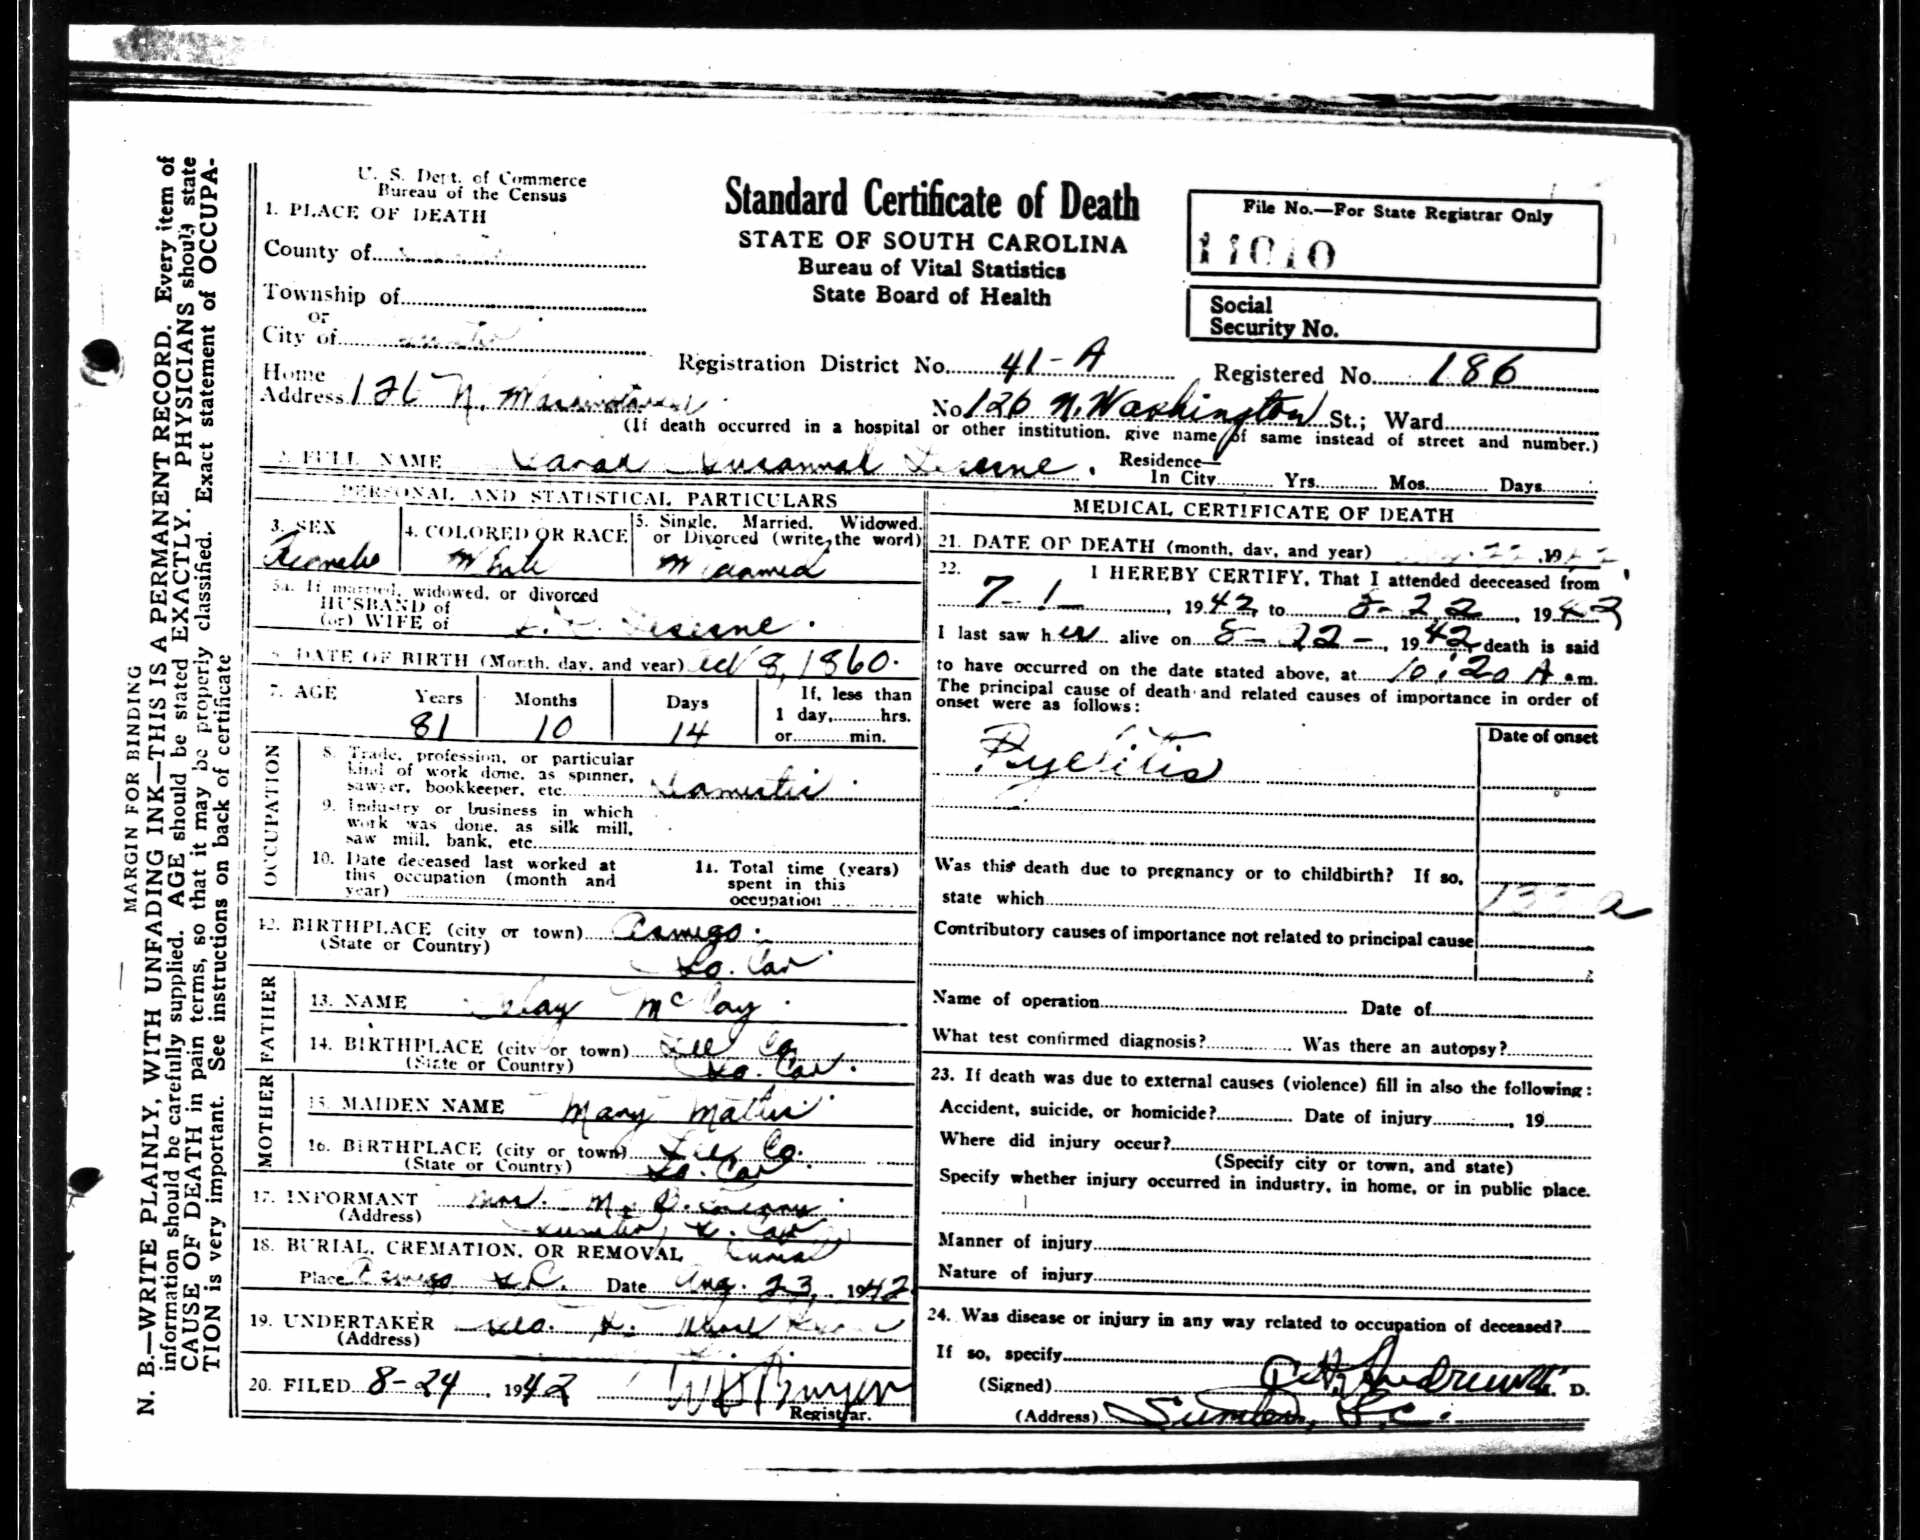 N. B.—WRITE PLAINLY, WITH UNFADING INK—THIS IS A PERMANENT RECORD. Every item of
information should be carefully supplied. AGE should be stated EXACTLY. PHYSICIANS should state
CAUSE OF DEATH in pain terms, so that it may be properly classified. Exact statement of OCCUPA-
TION is very important. See instructions on back of certificate
MARGIN FOR BINDING
U. S. Dept. of Commerce
Bureau of the Census
Standard Certificate of Death
STATE OF SOUTH CAROLINA
Bureau of Vital Statistics
State Board of Health
File No.—For State Registrar Only
11010
Social
Security No.
1. PLACE OF DEATH
County of
Township of
or
City of
Registration District No. 41-A
Registered No. 186
Home
Address 126 N.
No. 126 N. Washington St.; Ward
(If death occurred in a hospital or other institution, give name of same instead of street and number.)
2. FULL NAME Sarah Susannah
Residence—
In City Yrs. Mos. Days
PERSONAL AND STATISTICAL PARTICULARS
3. SEX
Female
4. COLORED OR RACE
White
5. Single, Married, Widowed,
or Divorced (write the word)
Widowed
5a. If married, widowed, or divorced
HUSBAND of
(or) WIFE of
6. DATE OF BIRTH (Month, day, and year) Oct 8, 1860.
7. AGE
Years
81
Months
10
Days
14
If, less than
1 day, hrs.
or min.
OCCUPATION
8. Trade, profession, or particular
kind of work done, as spinner,
sawyer, bookkeeper, etc. Domestic
9. Industry or business in which
work was done, as silk mill,
saw mill, bank, etc.
10. Date deceased last worked at
this occupation (month and
year)
11. Total time (years)
spent in this
occupation
12. BIRTHPLACE (city or town)
(State or Country)
So. Car.
FATHER
13. NAME
14. BIRTHPLACE (city or town) Lee Co.
(State or Country) So. Car.
MOTHER
15. MAIDEN NAME Mary
16. BIRTHPLACE (city or town) Lee Co.
(State or Country) So. Car.
17. INFORMANT Mrs. M.
(Address) Sumter, S. Car.
18. BURIAL, CREMATION, OR REMOVAL Burial
Place S.C. Date Aug. 23, 1942
19. UNDERTAKER
(Address)
20. FILED 8-24, 1942
Registrar.
MEDICAL CERTIFICATE OF DEATH
21. DATE OF DEATH (month, day, and year) 22, 1942
22. I HEREBY CERTIFY, That I attended deceased from
7-1-, 1942 to 8-22, 1942
I last saw her alive on 8-22-, 1942, death is said
to have occurred on the date stated above, at 10:20 A.m.
The principal cause of death and related causes of importance in order of
onset were as follows:
Date of onset
Pyelitis
Was this death due to pregnancy or to childbirth? If so,
state which
Contributory causes of importance not related to principal cause
Name of operation Date of
What test confirmed diagnosis? Was there an autopsy?
23. If death was due to external causes (violence) fill in also the following:
Accident, suicide, or homicide? Date of injury, 19
Where did injury occur?
(Specify city or town, and state)
Specify whether injury occurred in industry, in home, or in public place.
Manner of injury
Nature of injury
24. Was disease or injury in any way related to occupation of deceased?
If so, specify
(Signed) Andrews M. D.
(Address) Sumter, S.C.